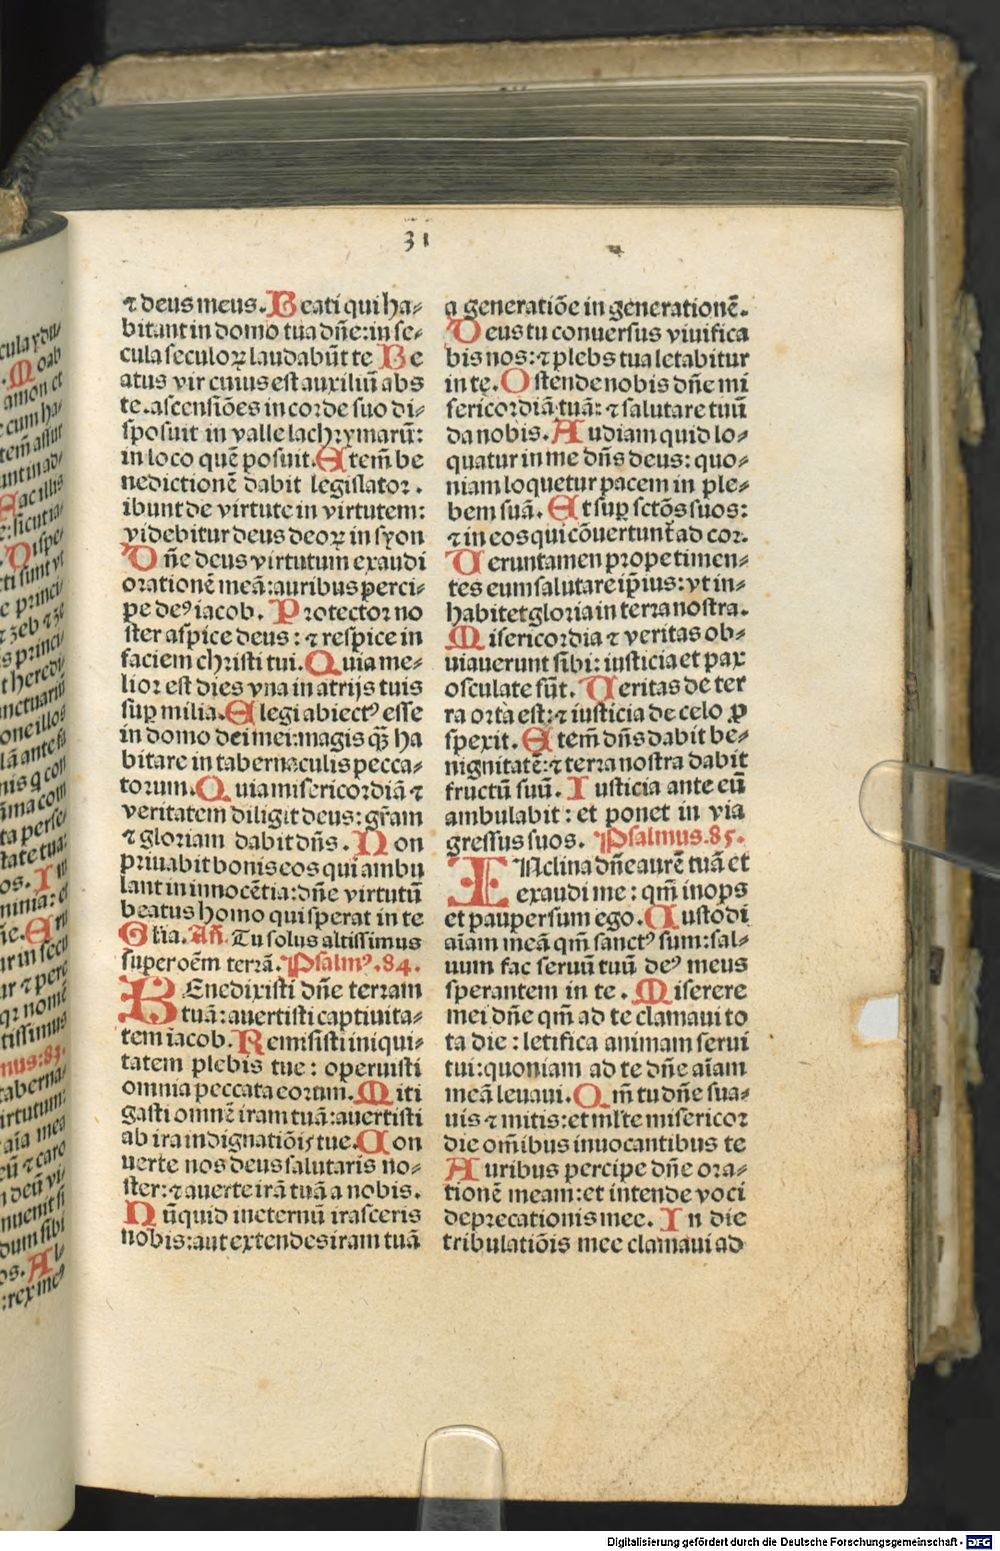 31
⁊ deus meus. Beati qui ha⸗
bitant in domo tua dn̄e: in se⸗
cula seculoꝝ laudabūt te Be
atus vir cuius est auxiliū abs
te. ascensiōes in corde suo di⸗
sposuit in valle lachrymarū:
in loco quē posuit. Etem̄ be
nedictionē dabit legislator.
ibunt de virtute in virtutem:
videbitur deus deoꝝ in syon
Dn̄e deus virtutum exaudi
orationē meā: auribus perci⸗
pe deꝰ iacob. Protector no
ster aspice deus: ⁊ respice in
faciem christi tui. Quia me⸗
lior est dies vna in atrijs tuis
suꝑ milia. Elegi abiectꝰ esse
in domo dei mei: magis qꝫ̄ ha
bitare in tabernaculis pecca⸗
torum. Quia misericordiā ⁊
veritatem diligit deus: gr̄am
⁊ gloriam dabit dn̄s. Non
priuabit bonis eos qui ambu
lant in innocētia: dn̄e virtutū
beatus homo qui sperat in te
Głia. Añ. Tu solus altissimus
super oēm terrā. Psalmꝰ. 84.
BEnedixisti dn̄e terram
tuā: auertisti captiuita⸗
tem iacob. Remisisti iniqui⸗
tatem plebis tue: operuisti
omnia peccata eorum. Miti
gasti omnē iram tuā: auertisti
ab ira indignatiōis tue. Con
uerte nos deus salutaris no⸗
ster: ⁊ auerte irā tuā a nobis.
Nūquid ineternū irasceris
nobis: aut extendes iram tuā
a generatiōe in generationē.
Deus tu conuersus viuifica
bis nos: ⁊ plebs tua letabitur
in te. Ostende nobis dn̄e mi
sericordiā tuā: ⁊ salutare tuū
da nobis. Audiam quid lo⸗
quatur in me dn̄s deus: quo⸗
niam loquetur pacem in ple⸗
bem suā. Et suꝑ sctōs suos:
⁊ in eos qui cōuertunt̄ ad cor.
Ueruntamen prope timen⸗
tes eum salutare ip̄ius: vt in⸗
habitet gloria in terra nostra.
Misericordia ⁊ veritas ob⸗
uiauerunt sibi: iusticia et pax
osculate sūt. Ueritas de ter
ra orta est: ⁊ iusticia de celo ꝓ
spexit. Etem̄ dn̄s dabit be⸗
nignitatē: ⁊ terra nostra dabit
fructū suū. Iusticia ante eū
ambulabit: et ponet in via
gressus suos. Psalmus. 85.
INclina dn̄e aurē tuā et
exaudi me: qm̄ inops
et pauper sum ego. Custodi
aīam meā qm̄ sanctꝰ sum: sal⸗
uum fac seruū tuū deꝰ meus
sperantem in te. Miserere
mei dn̄e qm̄ ad te clamaui to
ta die: letifica animam serui
tui: quoniam ad te dn̄e aīam
meā leuaui. Qm̄ tu dn̄e sua⸗
uis ⁊ mitis: et mlꝉte misericor
die om̄ibus inuocantibus te
Auribus percipe dn̄e ora⸗
tionē meam: et intende voci
deprecationis mee. In die
tribulatiōis mee clamaui ad
Digitalisierung gefördert durch die Deutsche Forschungsgemeinschaft - DFG